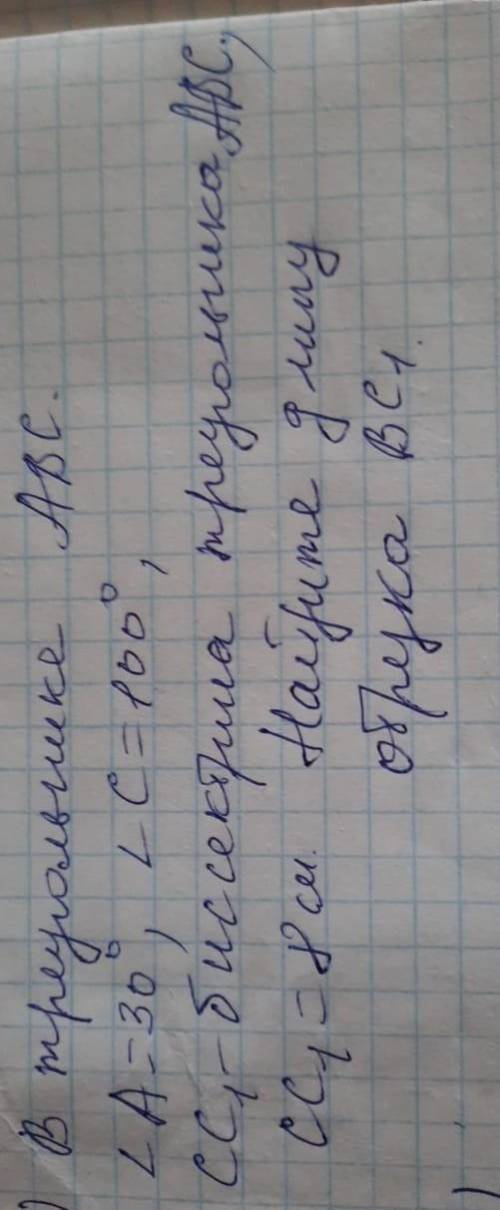 В треугольнике ABC.
∠A=30°, ∠C=100°,
CC₁-биссектриса треугольника ABC,
CC₁=8см. Найдите длину
отрезка BC₁.